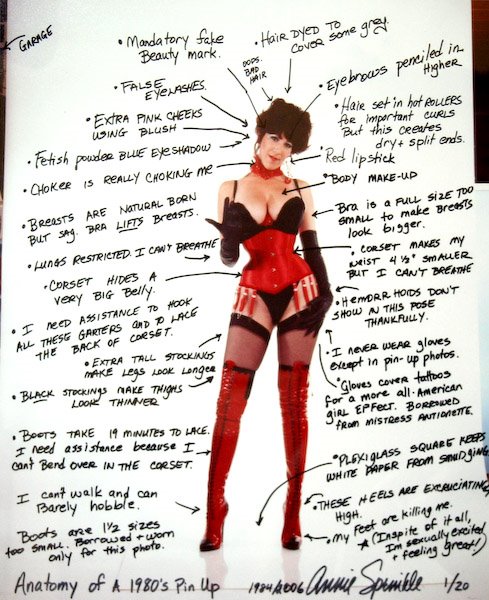 GARAGE
• Mandatory fake
Beauty mark.
OOPS.
BAD
HAIR
• HAIR DYED TO
COVER some grey.
• FALSE
EYELASHES.
• Eyebrows penciled in
Higher
• EXTRA PINK CHEEKS
USING BLUSH
• Hair set in hot ROLLERS
FOR important CURLS
But this creates
dry + split ends.
• Fetish powder BLUE EYESHADOW
• Red lipstick
• CHOKER is REALLY CHOKING ME
• BODY MAKE-UP
• BREASTS ARE NATURAL BORN
BUT SAG. BRA LIFTS BREASTS.
• Bra is a FULL SIZE TOO
SMALL to make BREASTS
look bigger.
• LUNGS RESTRICTED I CAN'T BREATHE
• CORSET MAKES MY
WAIST 4 1/2" SMALLER
BUT I CAN'T BREATHE
• CORSET HIDES A
VERY BIG Belly.
• HEMORRHOIDS DON'T
SHOW IN THIS POSE
THANKFULLY.
• I NEED ASSISTANCE TO HOOK
ALL THESE GARTERS AND TO LACE
THE BACK OF CORSET.
• I NEVER WEAR GLOVES
EXCEPT in PIN-UP PHOTOS.
• EXTRA TALL STOCKINGS
MAKE LEGS LOOK LONGER
• Gloves cover tattoos
for a more all-American
girl EFFECT. BORROWED
FROM MISTRESS ANTOINETTE.
• BLACK STOCKINGS MAKE THIGHS
LOOK THINNER
• BOOTS TAKE 19 MINUTES TO LACE.
I need assistance because I
can't Bend over IN THE CORSET.
• PLEXIGLASS SQUARE KEEPS
WHITE PAPER FROM SMUDGING
• I can't walk and can
Barely hobble.
• THESE HEELS ARE EXCRUCIATING
HIGH.
• Boots are 1 1/2 sizes
too small. Borrowed + worn
only for this photo.
• My Feet are killing me.
★ (Inspite of it all,
I'm sexually excited
+ feeling great!)
Anatomy of A 1980's Pin Up 1984/2006 Annie Sprinkle 1/20